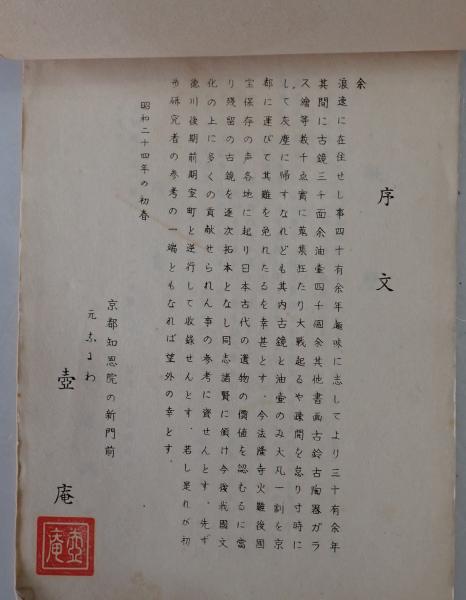 序文
余
浪速に在住せし事四十有余年趣味に志してより三十有余年
其間に古鏡三千面余油壷四千個余其他書画古鈴古陶器ガラ
ス繪等数千点實に蒐集狂たり大戦起るや疎開を怠り寸時に
して灰塵に帰すなれども其内古鏡と油壷のみ大凡一割を京
都に運びて其難を免れたるを幸甚とす．今法隆寺火難後国
宝保存の声各地に起り日本古代の遺物の價値を認むるに當
り残留の古鏡を逐次拓本となし同志諸賢に傾け今後我國文
化の上に多くの貢献せられん事の参考に資せんとす．先ず
徳川後期前期室町と逆行して收録せんとす．若し是れが初
歩研究者の参考の一端ともなれば望外の幸とす．
昭和二十四年の初春
京都知恩院の新門前
元なにわ
壺庵
壺庵